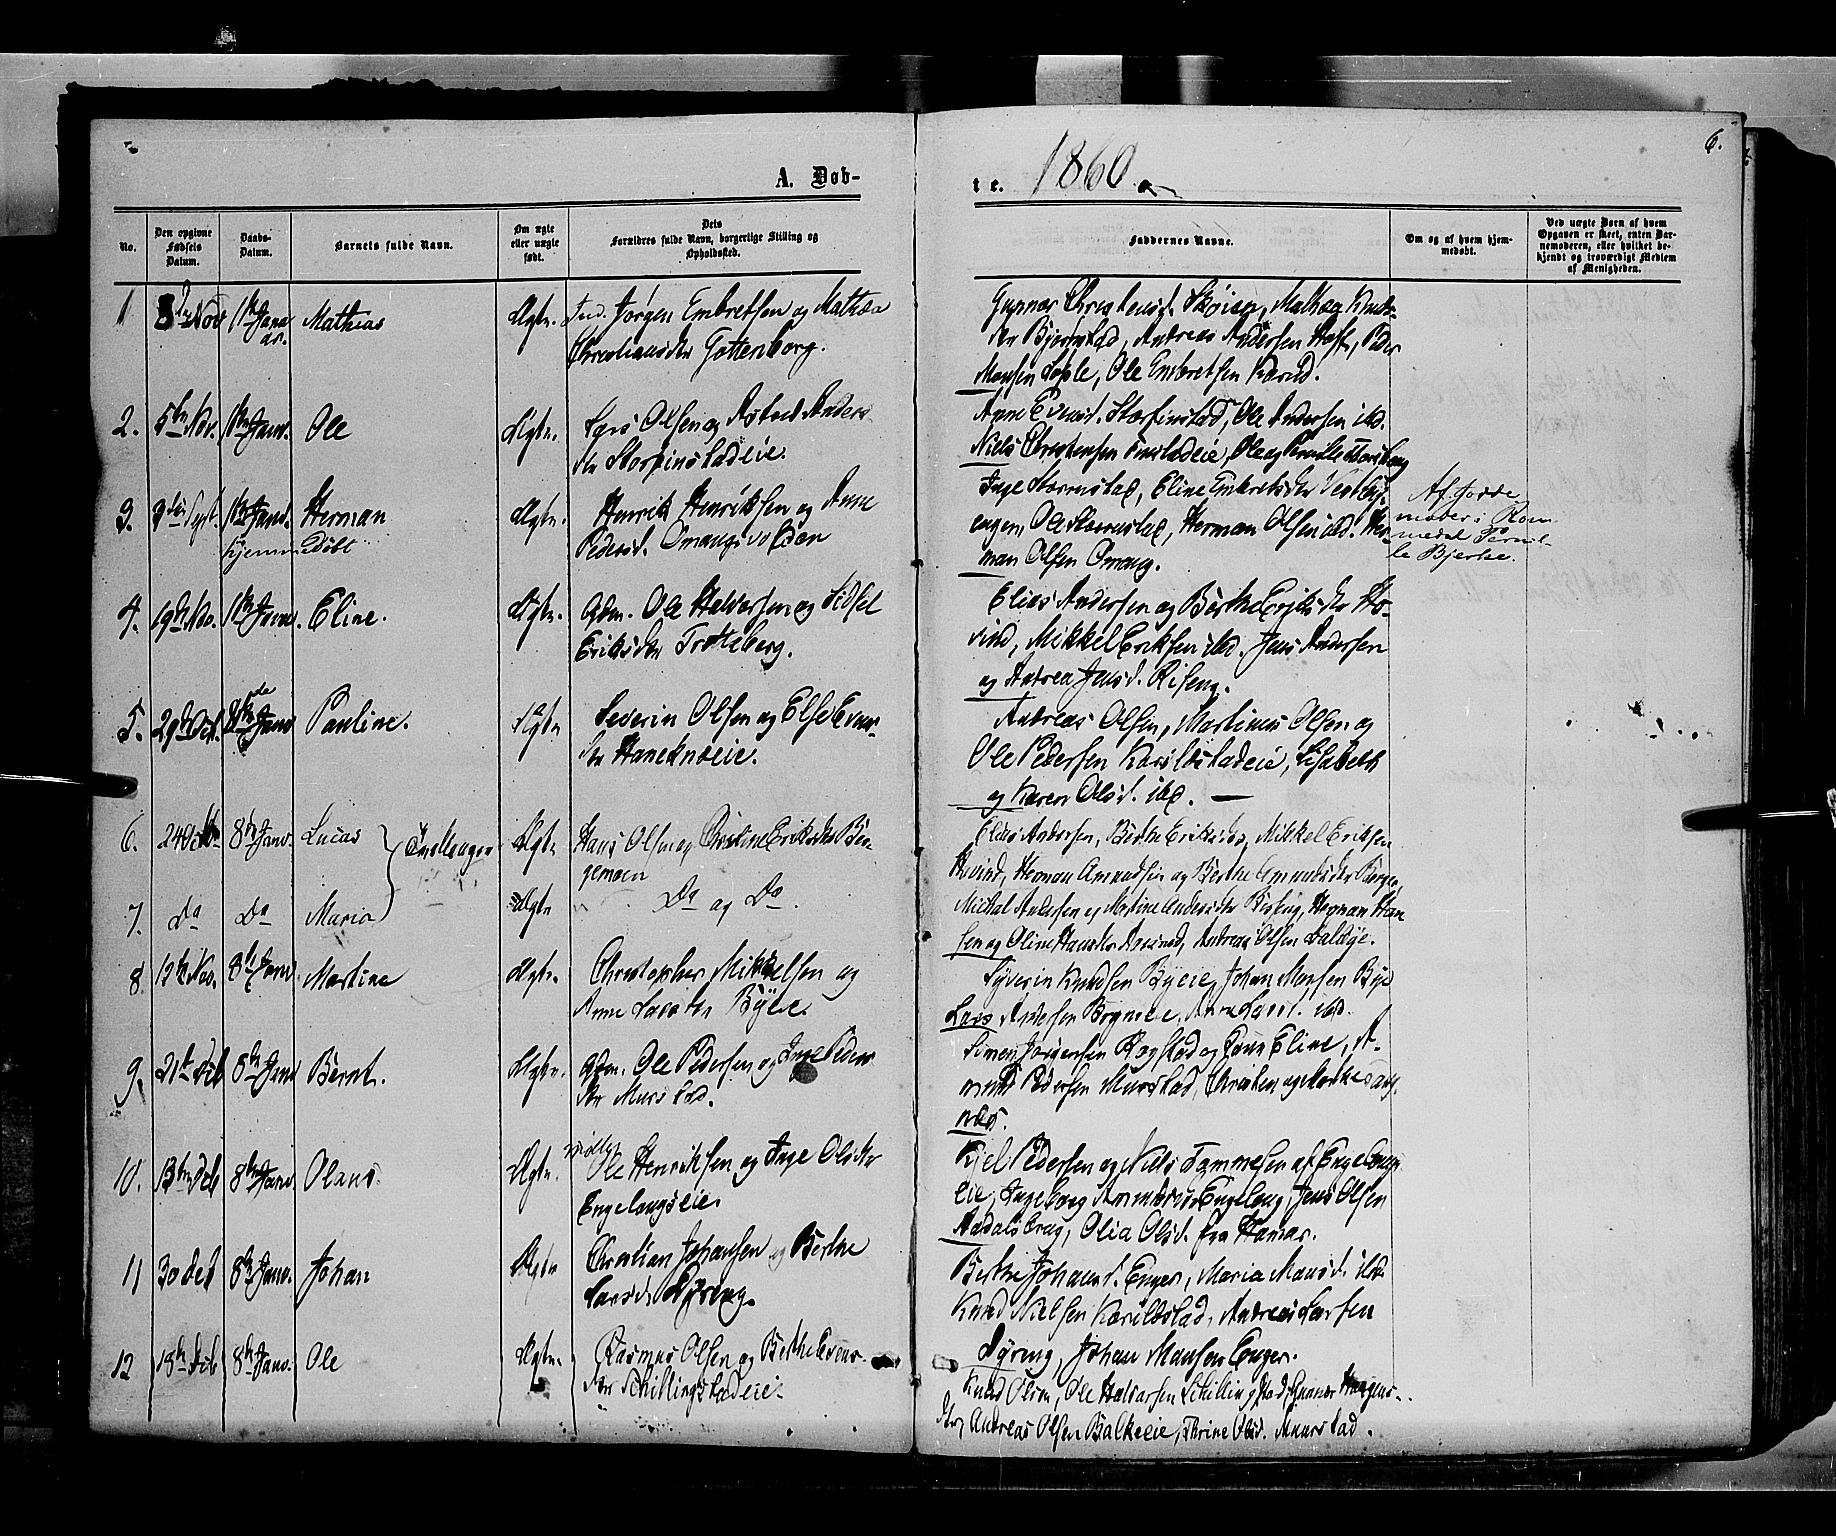 A. Døb-
te. 1860
6.
No.
Den opgivne Fødsels Datum.
Daabs-Datum.
Barnets fulde Navn.
Om ægte eller uægte født.
Dets Forældres fulde Navn, borgerlige Stilling og Opholdssted.
Faddernes Navne.
Om og af hvem hjemmedøbt.
Ved uægte Børn af hvem Opgaven er skeet, enten Barnemoderen, eller hvilket bekjendt og troværdigt Medlem af Menigheden.
1 Nov 1ste Janu Mathias Ægte. Ind. Jørgen Embretsen og Mathea
ar. Christiansdtr Gottenborg.
Mathea Knuds-
dtr Bjørnstad, Andreas Andersen Hoft, Peder
Monsen, Ole Embretsen
2. 5te Nov. 1ste Janr. Ole Ægte. Lars Olsen og Astrid Anders-
dtr Storfinstadeie.
Anne Evensd. Storfinstad, Ole Andersen ibd.
Niels Christensen Finstadeie, Ole og Pernille
3. 3die Sept. 1ste Janr. Herman Ægte. Henrik Henriksen og Anne
hjemmedøbt Pedersd. Omangsvolden
Inge, Eline Embretsdtr
engen, Ole, Herman Olsen ibd. Her-
man Olsen Omang.
Af Jorde-
moder i Rom-
medal Pernil-
le Bjerke.
4. 19de No. 1ste Janr. Eline. Ægte. Gdm. Ole Halvorsen og Sidsel
Eriksdtr Trotteberg.
Elias Andersen og Berthe Eriksdtr Ho-
vind, Mikkel Eriksen ibd. Jens Andersen
og Andrea Jensd. Riseng.
5. 29de Oct. 8de Janr Pauline. Ægte Severin Olsen og Else Evens-
dtr Haneknæeie.
Andreas Olsen, Martinus Olsen og
Ole Pedersen Karilstadeie, Lisabeth
og Karen Olsd. ibd.
6. 24 8de Janr. Lucas Tvillinger Ægte Hans Olsen og Christine Eriksdtr Ber-
gemoen
7. Do Do Maria Ægte Do og Do.
Elias Andersen, Berthe Eriksdtr, Mikkel Eriksen
Hovind, Herman Amundsen og Berthe Amundsdtr Berger,
Michal Andersen og Martine Andersdtr, Herman Han-
sen og Oline Hansdtr, Andreas Olsen
8. 12te Nov. 8de Janr Martine Ægte. Christopher Mikkelsen og
Anne Larsdtr Byeie.
Syverin Knudsen Byeie, Johan Monsen Bye
Lars Andersen, Anne Larsd. ibd.
9. 21de Deb 8de Janr Bernt. Ægte. Gdm. Ole Pedersen og Inge Peders-
dtr Murstad.
Simen Jørgensen Rogstad og Kone Eline, A-
mund Pedersen Murstad, Christian og Marthe Aag-
næs.
10. 13de Deb 8de Janr Olaus. Ægte. Ole Henriksen og Inge Olsdtr
Engelaugseie.
Kjel Pedersen og Niels Tommesen af Engelaugs-
eie, Ingeborg Engelaug, Jens Olsen
Aadalsbrug, Olia Olsd. fra Hamar.
11 30 Deb 8de Janr. Johan Ægte Christian Johansen og Berthe
Larsd. Dyreng.
Berthe Johansd. Enger, Maria Monsd. ibd.
Knud Nielsen Karilstad, Andreas Larsen
Dyring, Johan Monsen Enger.
12 18de Deb 8de Janr. Ole Ægte. Rasmus Olsen og Berthe Evens-
dtr Schillingstadeie.
Knud Olsen, Ole Halvorsen Schillingstad, Gunner Haagens-
dtr, Andreas Olsen Balkeeie, Thrine Olsd. Muurstad.